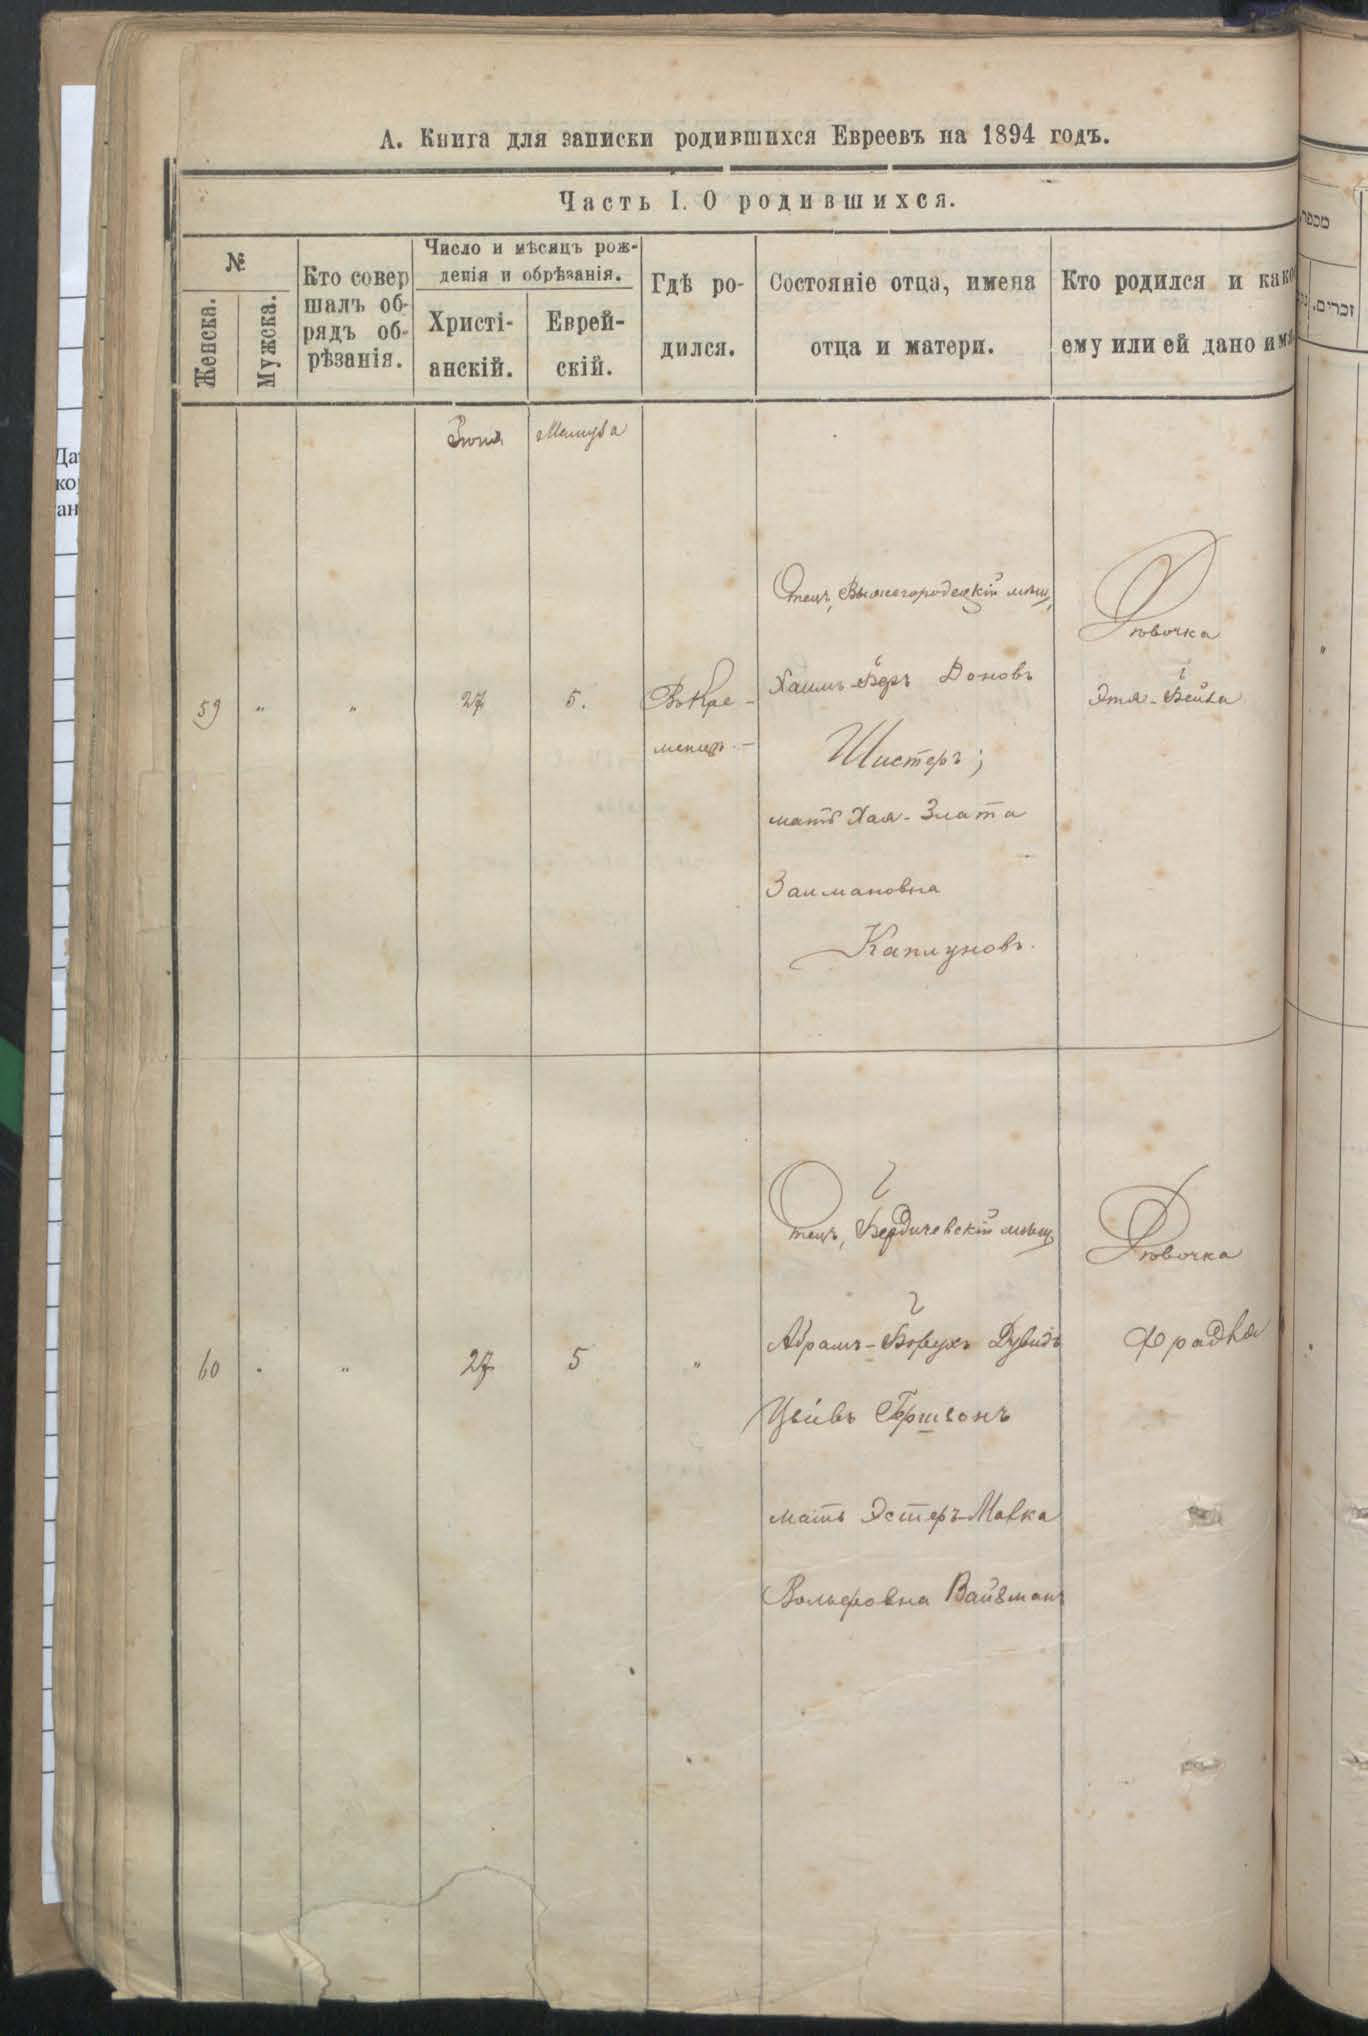 А. Книга для записки родившихся Евреевъ на 1894 годъ.
Часть I. О родившихся.
№
Женска.
Мужска.
Кто совер
шалъ об-
рядъ об-
рѣзанія.
Число и мѣсяцъ рож-
денія и обрѣзанія.
Христі-
анскій.
Еврей-
скій.
Гдѣ ро-
дился.
Состояніе отца, имена
отца и матери.
Кто родился и како
ему или ей дано имя
Іюня
59 " " 27 5.
Въ Кре-
менцѣ
Отецъ, Вышегородецкій мѣщ,
Хаимъ-Беръ
Шистеръ;
мать Хая-Злата
Залмановна
Каплуновъ.
Дѣвочка
Этя-Бейла
60 " " 27 5 "
Отецъ, Бердичевскій мѣщ
Абрамъ-Борухъ Дувидъ
Гершсонъ
мать Эстеръ-Малка
Вольфовна Вайзманъ
Дѣвочка
Фрадля
מכפר
זכרים.
Да
ко
ан